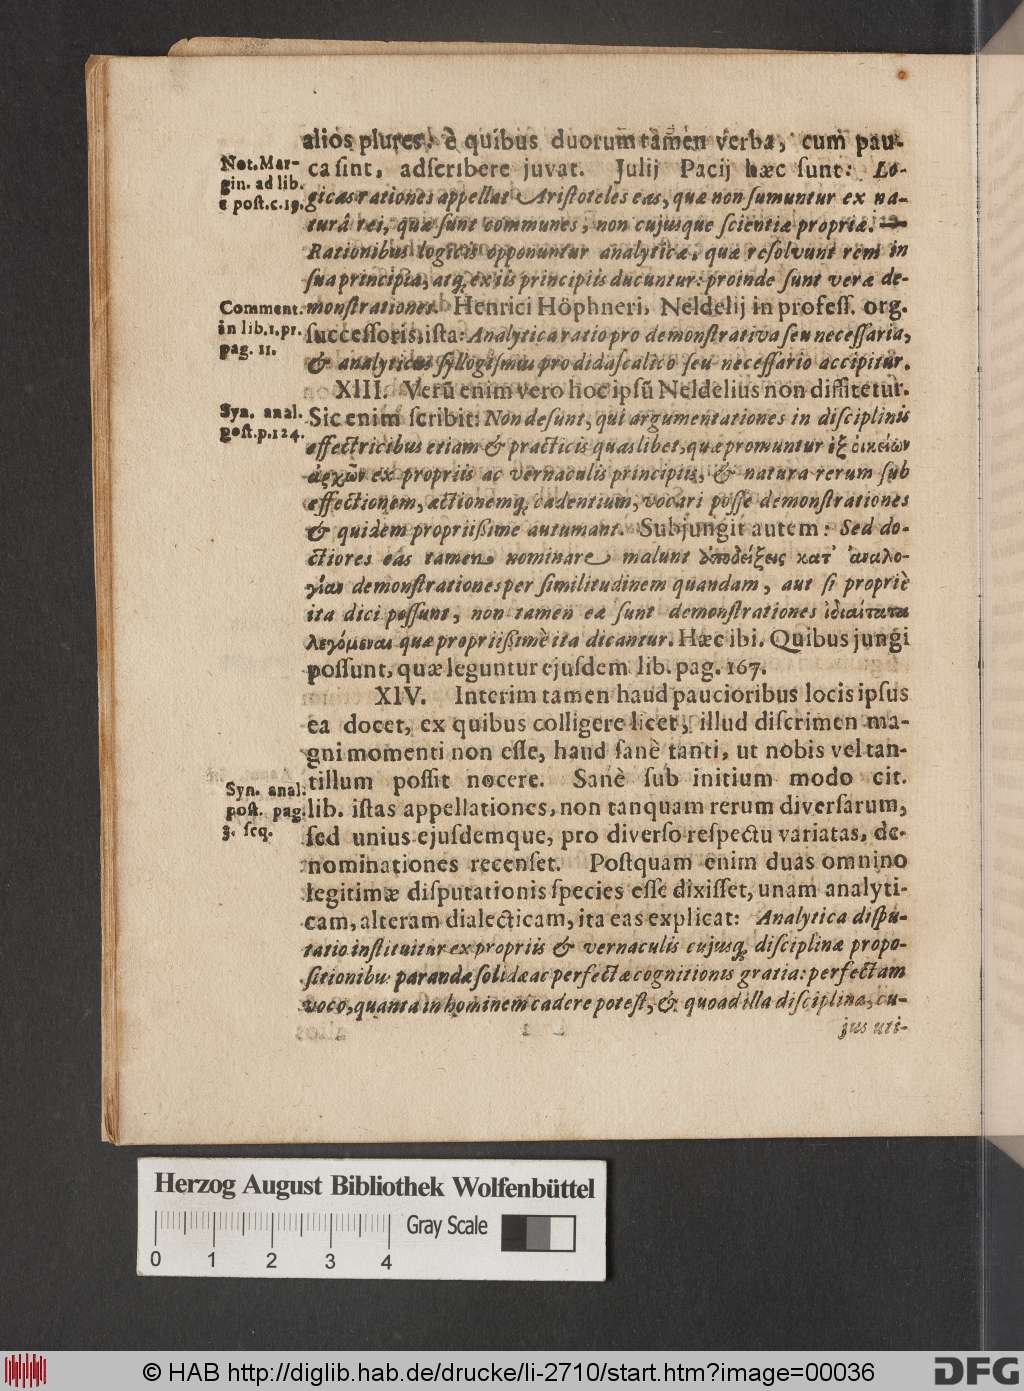 alios plures, è quibus duorum tamen verba, cum pau-
Not. Mar-
gin. ad lib.
e post. c. 19.
ca sint, adscribere juvat. Julij Pacij hæc sunt: Lo-
gicas rationes appellat Aristoteles eas, quæ non sumuntur ex na-
turâ rei, quæ sunt communes, non cujusque scientiæ propriæ. —
Rationibus logicis opponuntur analyticæ, quæ resolvunt rem in
sua principia, atq; ex iis principiis ducuntur: proinde sunt veræ de-
Comment.
in lib. 1. pr.
pag. 11.
monstrationes. Henrici Höphneri, Neldelij in profess. org.
successoris, ista: Analytica ratio pro demonstrativa seu necessaria,
& analyticus syllogismus pro didascalico seu necessario accipitur.
XIII. Verũ enim vero hoc ipsũ Neldelius non diffitetur.
Syn. anal.
post. p. 124.
Sic enim scribit: Non desunt, qui argumentationes in disciplinis
effectricibus etiam & practicis quaslibet, quæ promuntur ἐξ οἰκείων
ἀρχῶν ex propriis ac vernaculis principiis, & natura rerum sub
effectionem, actionemq; cadentium, vocari posse demonstrationes
& quidem propriißime autumant. Subjungit autem: Sed do-
ctiores eas tamen nominare malunt ἀποδείξεις κατ' ἀναλο-
γίαν demonstrationes per similitudinem quandam, aut si propriè
ita dici possunt, non tamen eæ sunt demonstrationes ἰδιαίτατα
λεγόμεναι quæ propriißimè ita dicantur. Hæc ibi. Quibus jungi
possunt, quæ leguntur ejusdem lib. pag. 167.
XIV. Interim tamen haud paucioribus locis ipsus
ea docet, ex quibus colligere licet, illud discrimen ma-
gni momenti non esse, haud sanè tanti, ut nobis vel tan-
Syn. anal.
post. pag.
3. seq.
tillum possit nocere. Sanè sub initium modo cit.
lib. istas appellationes, non tanquam rerum diversarum,
sed unius ejusdemque, pro diverso respectu variatas, de-
nominationes recenset. Postquam enim duas omnino
legitimæ disputationis species esse dixisset, unam analyti-
cam, alteram dialecticam, ita eas explicat: Analytica dispu-
tatio instituitur ex propriis & vernaculis cujusq; disciplinæ propo-
sitionibus parandæ solidæ ac perfectæ cognitionis gratia: perfectam
voco, quanta in hominem cadere potest, & quoad illa disciplina, cu-
jus uti-
Herzog August Bibliothek Wolfenbüttel
Gray Scale
0 1 2 3 4
© HAB http://diglib.hab.de/drucke/li-2710/start.htm?image=00036
DFG